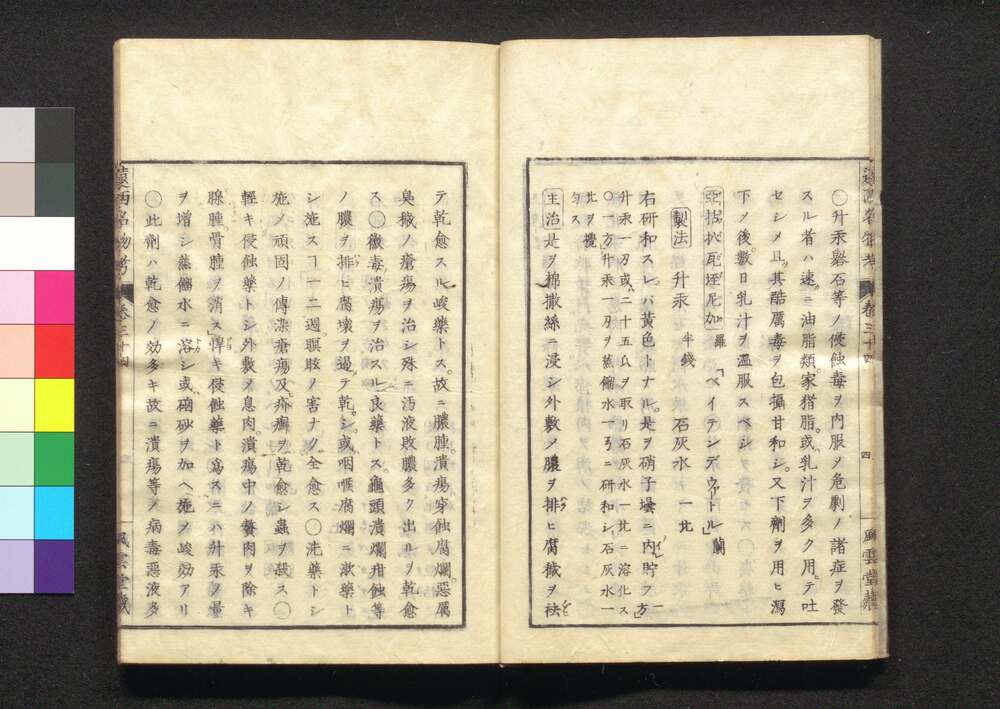 遠西名物考 卷三十四 四 風雲堂藏
〇升汞礜石等ノ侵蝕毒ヲ內服ノ危劇ノ諸症ヲ發
スル者ハ速ニ油脂類家猪脂。或乳汁ヲ多ク用テ吐
セシメ且其酷厲毒ヲ包攝甘和シ。又下劑ヲ用ヒ瀉
下ノ後。數日乳汁ヲ溫服スベシ
亞授扒瓦垤尼加 羅 「ベイテンデウァートル」蘭
製法 升汞 半錢 石灰水 一比
右研和スレバ黃色トナル。是ヲ硝子壜ニ內貯フ 一方」
升汞一刃或ハ二十五瓜ヲ取リ石灰水一比ニ溶化ス
〇一方升汞一刃ヲ蒸餾水一弓ニ研和シ。石灰水一
比ヲ攪
匀ス
主治 是ヲ綿撒絲ニ浸シ外敷ノ膿ヲ排ヒ腐穢ヲ袪
テ乾愈スル峻藥トス。故ニ膿腫。潰瘍穿蝕腐爛。惡厲
臭穢ノ瘡瘍ヲ治シ殊ニ沔液敗膿多ク出ルヲ乾愈
ス〇黴毒潰瘍ヲ治スル良藥トス。龜頭潰爛疳蝕等
ノ膿ヲ排ヒ腐壞ヲ遏テ乾シ。或咽喉腐爛ニ漱藥ト
シ施スヿ一二週。瞑眩ノ害ナク全愈ス〇洗藥トシ
施ノ頑固ノ傳染瘡瘍及疥癬ヲ乾愈シ蟲ヲ殺ス〇
輕キ侵蝕藥トシ外敷ノ息肉。潰瘍中ノ贅肉ヲ除キ
腺腫。骨腫ヲ消ス」悍キ侵蝕藥ト寫スニハ升汞ノ量
ヲ增シ蒸餾水ニ溶シ或ハ硇砂ヲ加ヘ施ノ峻効アリ
〇此劑ハ乾愈ノ効多キ故ニ潰瘍等ノ病毒惡液多
遠西名物考 卷三十四 風雲堂藏